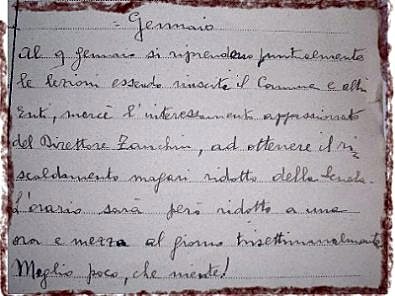 = Gennaio
Al 9 gennaio si riprendono puntualmente
le lezioni essendo riuscito il Comune e altri
Enti, mercè l'interessamento appassionato
del Direttore Zanchin, ad ottenere il ri=
scaldamento magari ridotto della scuola.
L'orario sarà però ridotto a una
ora e mezza al giorno trisettimanalmente
Meglio poco, che niente!